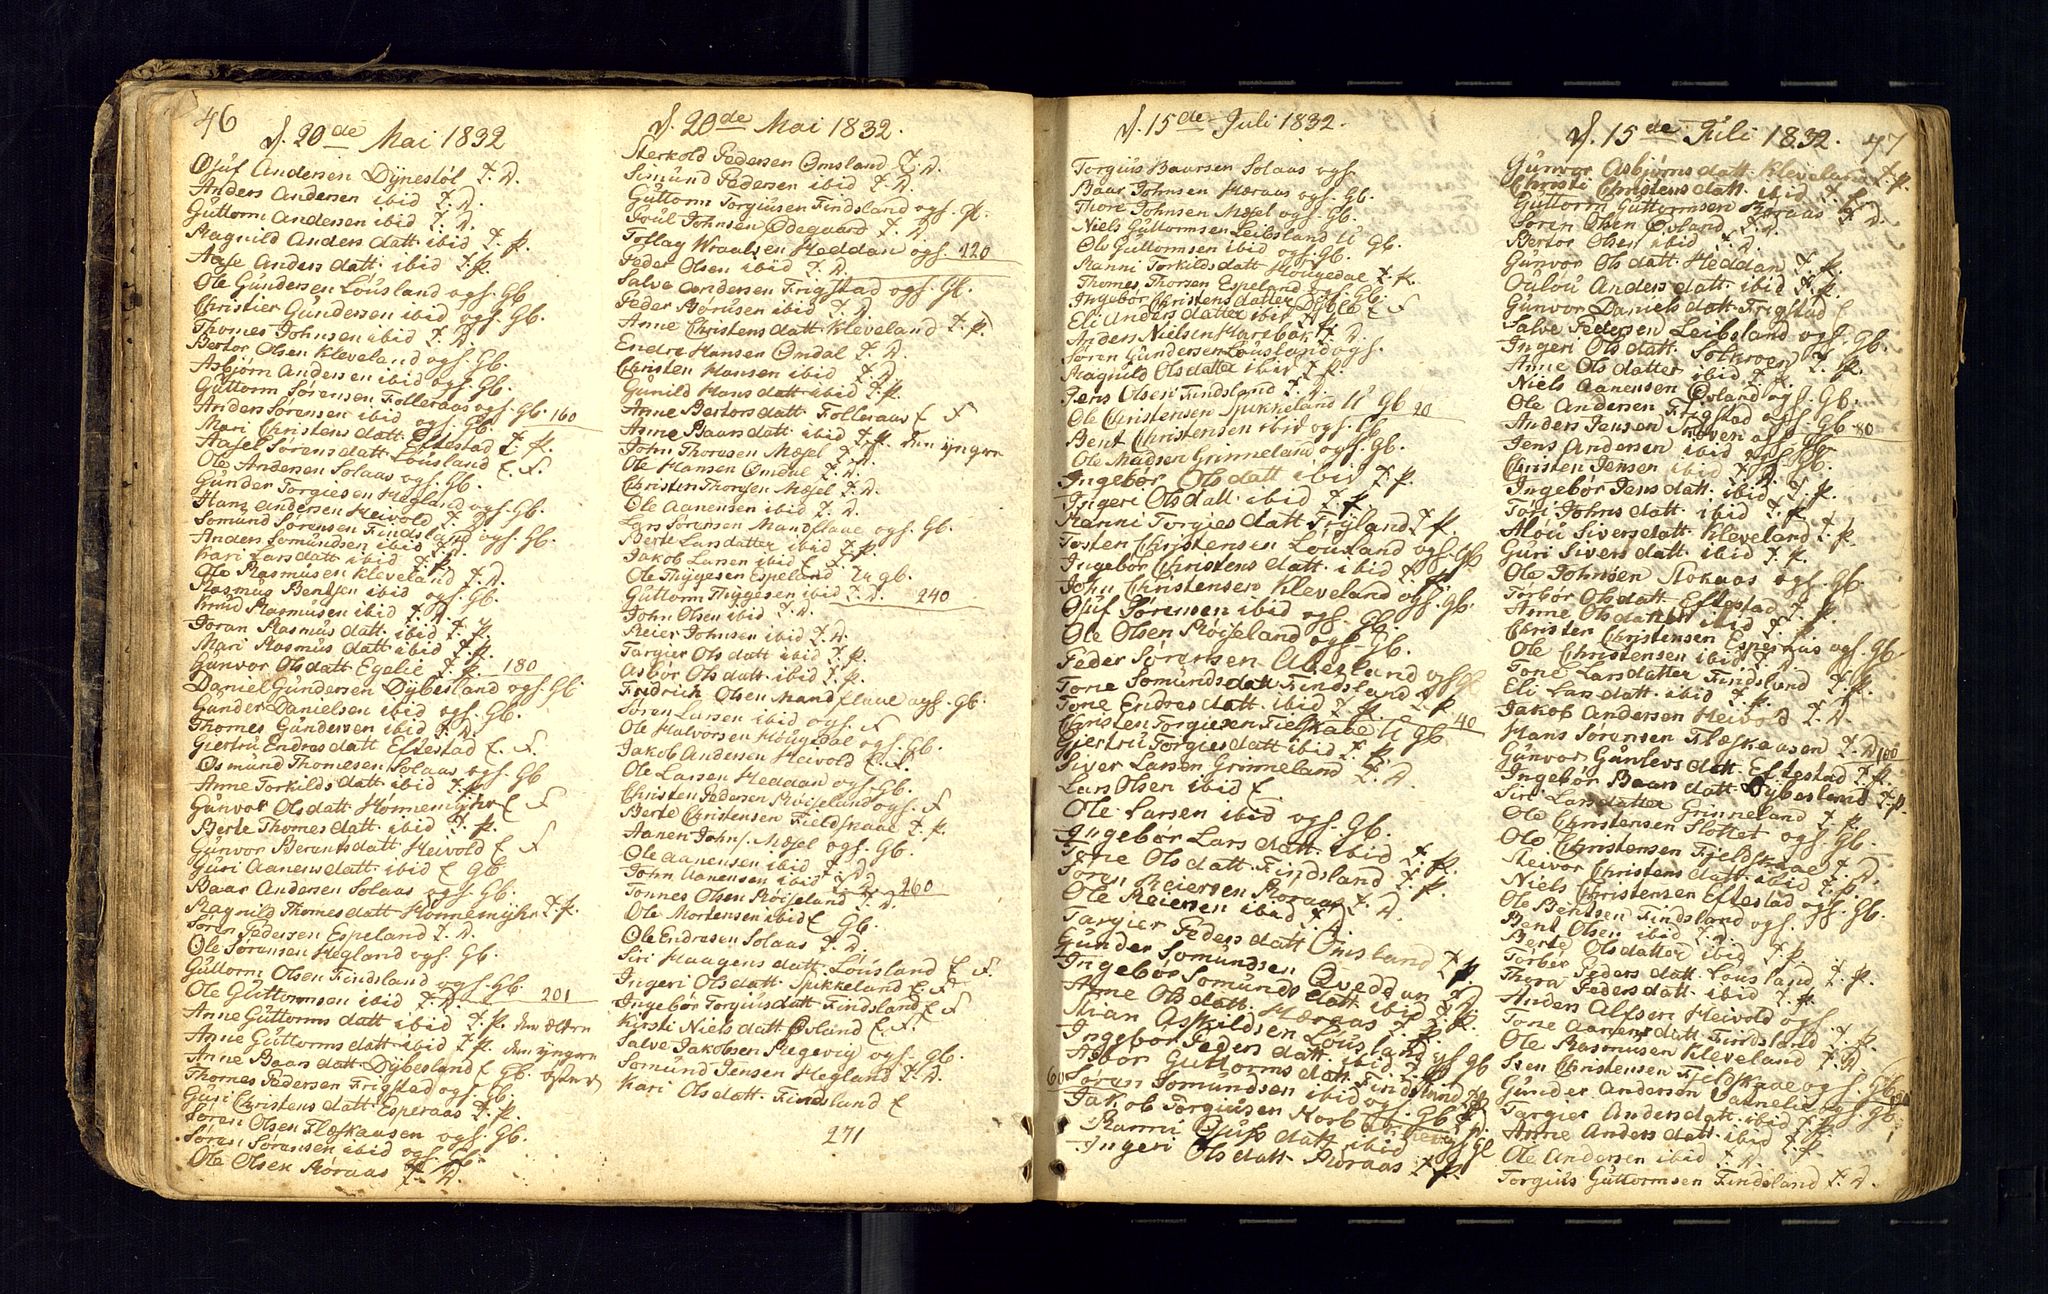 46
d. 20de Mai 1832
Oluf Andersen Dynestøl T. D.
Anders Andersen ibid T. D.
Guttorm Andersen ibid T. D.
Ragnild Anders datt. ibid T. P.
Aase Anders datt. ibid T. P.
Ole Gundersen Løusland ogs. Gb.
Christier Gundersen ibid ogs. Gb.
Thomes Johnsen ibid T. D.
Bertor Olsen Kleveland ogs. Gb.
Asbjørn Andersen ibid ogs. Gb.
Guttorm Sørensen Folleraas ogs. Gb.
Anders Sørensen ibid ogs. Gb. 160
Mari Christens datt. Eftestad T. P.
Aasel Sørens datt. Løusland E F.
Ole Andersen Solaas ogs. Gb.
Gunder Torgiesen Hegland ogs. Gb.
Hans Andersen Heivold T. D.
Somund Sørensen Findsland ogs. Gb.
Anders Somundsen ibid T. D.
Kari Lars datt. ibid T. P.
Ole Rasmusen Kleveland T. D.
Rasmus Bentsen ibid ogs. Gb.
Knud Rasmusen ibid T. D.
Joran Rasmus datt. ibid T. P.
Mari Rasmus datt. ibid T. P.
Gunvor Ols datt. Egelie T. P. 180
Daniel Gundersen Dybesland ogs. Gb
Gunder Danielsen ibid ogs. Gb.
Thomes Gundersen ibid T. D.
Giertru Endres datt Eftestad E. F.
Osmund Thomesen Solaas ogs. Gb
Anne Torkilds datt. ibid T. P.
Gunvor Ols datt. Honnemyhr E F
Berte Thomes datt. ibid T. P.
Gunvor Berents datt. Heivold E F
Guri Aanens datt. ibid E Gb
Baar Andersen Solaas ogs. Gb.
Ragnild Thomes datt. Honnemyhr T. P.
Sören Pedersen Espeland T. D.
Ole Sørensen Hegland ogs. Gb.
Guttorm Olsen Findsland ogs. Gb.
Ole Guttormsen ibid T. D. 201
Anne Guttorms datt. ibid T. P. den ældre
Anne Guttorms datt. ibid T. P. den yngere
Anne Baars datt. Dybesland E Gb.
Thomes Pedersen Frigstad ogs. Gb.
Guri Christens datt. Esperaas T. P.
Søren Olsen Flæskaasen ogs. Gb.
Søren Sørensen ibid ogs. Gb.
Ole Olsen Røraas T. D.
d. 20de Mai 1832.
Sterkold Pedersen Omsland T. D.
Simund Pedersen ibid T. D.
Guttorm Torgiusen Findsland ogs. Gb.
Poul Johnsen Ødegaard T. D
Toflag Wraalsen Heddan ogs. 220
Peder Olsen ibid T. D.
Salve Andersen Frigstad ogs. Gb.
Peder Børusen ibid T. D.
Anne Christens datt. Kleveland T. P.
Endre Hansen Omdal T. D.
Christen Hansen ibid T. D.
Gunild Hans datt. ibid T. P.
Anne Bertors datt. Folleraas E F
Anne Baars datt. ibid T. P. den yngere
John Thoresen Mæsel T. D.
Ole Hansen Omdal T. D.
Christen Thoresen Mæsel T. D.
Ole Aanensen ibid T. D.
Lars Sørensen Mandflaae ogs. Gb.
Berte Lars datter ibid T. P.
Jakob Larsen ibid E F.
Ole Thygesen Espeland U Gb.
Guttorm Thygesen ibid T. D. 240
John Olsen ibid T. D.
Reier Johnsen ibid T. D.
Targier Ols datt ibid T. P.
Asbør Ols datt. ibid T. P.
Fridrich Olsen Mandflaae ogs. Gb.
Søren Larsen ibid ogs. F
Ole Halvorsen Hougedal ogs. Gb.
Jakob Andersen Heivold E F
Ole Larsen Heddan ogs. Gb.
Christen Pedersen Røiseland ogs. F
Berte Christensen Fieldskaae T. P.
Aanen Johns. Mæsel ogs. Gb.
Ole Aanensen ibid T. D
John Aanensen ibid T. D. 260
Tonnes Olsen Røiseland T. D.
Ole Mortensen ibid E Gb.
Ole Endresen Solaas T. D.
Siri Haagens datt. Løusland E F.
Ingeri Ols datt. Spikkeland E F
Ingebør Torgius datt Findsland E F
Kirsti Niels datt Øvland E F.
Salve Jakobsen Regevig ogs. Gb.
Somund Jensen Hegland T. D.
Kari Ols datt. Findsland E
271
d. 15de Juli 1832.
Torgius Baarsen Solaas ogs.
Baar Johnsen Hæraas ogs. Gb.
Thore Johnsen Mæsel ogs. Gb.
Niels Guttormsen Leibsland U Gb.
Ole Guttormsen ibid ogs. Gb.
Ranni Torkilds datt Hougedal T. P.
Thomes Thorsen Espeland ogs. Gb.
Ingebør Christens datter Dyblæ E F
Eli Anders datter ibid T. P.
Anders Nielsen Harebak T. D.
Søren Gundersen Løusland ogs.
Ragnild Ols datter ibid T. P.
Jens Olsen Findsland T. D.
Ole Christensen Spikkeland U Gb 20
Bent Christensen ibid ogs. Gb
Ole Madsen Grimeland ogs. Gb.
Ingebør Ols datt ibid T. P.
Ingeri Ols datt. ibid T. P.
Ranni Torgies datt Trygland T. P.
Tosten Christensen Løusland ogs. Gb
Ingebør Christens datt. ibid T. P.
John Christensen Kleveland ogs. Gb.
Oluf Sørensen ibid ogs. Gb.
Ole Olsen Røiseland ogs. Gb.
Peder Sørensen Abesland ogs Gb
Tone Somunds datt. Findsland T. P.
Tone Endres datt. ibid T. P.
Christen Torgiesen Fielskaae U Gb. 40
Giertru Torgies datt ibid T. P.
Siver Larsen Grimeland T. D.
Lars Olsen ibid E
Ole Larsen ibid ogs. Gb.
Ingebør Lars datt. ibid T. P.
Tone Ols datt. Findsland T. P.
Søren Reiersen Røraas T. D.
Ole Reiersen ibid T. D.
Targier Peders datt Omsland T. P
Gunder Somundsen Qveddan T. D
Ingebør Somunds datt ibid T. P
Anne Ols datt. Hæraas T. P.
Alvan Askildsen Løusland ogs Gb
Ingebør Peders datt. ibid T. P.
Asbor Guttorms datt Findsland T. P.
60 Søren Somundsen ibid ogs. Gb
Jakob Torgiusen Korb
Ranni Olufs datt ibid
Ingeri Ols datt. Røraas T. P.
d. 15de Juli 1832. 47
Gunvor Asbjørns datt Kleveland T. P.
Christi Christens datt. ibid T. P.
Guttorm Guttormsen Røraas T. D.
Søren Olsen Øvland T. D.
Bertor Olsen ibid T. D.
Gunvor Ols datt. Heddan T. P.
Oulou Anders datt. ibid T. P.
Gunvor Daniels datt. Frigstad E
Salve Pedersen Leibsland ogs. Gb.
Ingeri Ols datt. T. P.
Anne Ols datter ibid T. P.
Niels Aanensen Øvland ogs. Gb.
Ole Andersen Frigstad ogs. Gb 80
Anders Jensen ogs. Gb
Jens Andersen ibid ogs. Gb.
Christen Jensen ibid T. D.
Ingebør Jens datt. ibid T. P.
Tori Johns datt. ibid T. P.
Alou Sivers datt. Kleveland T. P.
Guri Sivers datt. ibid T. P.
Ole Johnsen Stokaas ogs. Gb.
Torbør Ols datt. Eftestad T. P.
Anne Ols datt ibid T. P.
Christen Christensen Esperaas ogs. Gb
Ole Christensen ibid T. D.
Tone Lars datter Findsland T. P.
Eli Lars datt. ibid T. P.
Jakob Andersen Heivold T. D.
Hans Sørensen Flæskaasen T. D. 100
Gunvor Gunlevs datt. Eftestad T. P.
Ingebør Baars datt. Dybesland T. P.
Siri Lars datter Grimeland T. P.
Ole Christensen Slottet ogs. Gb.
Ole Christensen Fieldskaae T. D.
Reivor Christens datt. ibid T. P.
Niels Christensen Eftestad ogs. Gb.
Ole Bentsen Findsland ogs. Gb.
Bent Olsen ibid T. D.
Berte Ols datter ibid T. P.
Torbør Peders datt. Løusland T. P.
Thora Peders datt. ibid T. P.
Anders Alfsen Heivold ogs.
Tone Aanens datt Findsland T. P.
Ole Rasmusen Kleveland T. D
Sven Christensen Fieldskaae ogs. Gb
Gunder Andersen ogs Gb
Targier Anders datt. ibid T. P.
Anne Anders datt. ibid T. P.
Ole Andersen ibid T. D.
Torgius Guttormsen Findsland T. D.